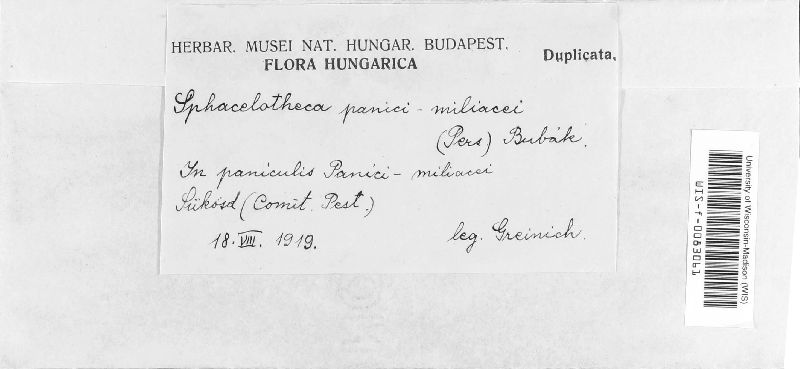 HERBAR. MUSEI NAT. HUNGAR. BUDAPEST.
Duplicata.
FLORA HUNGARICA
Sphacelotheca panici - miliacei
(Pers) Bubák.
In paniculis Panici - miliacei
Sükösd (Comit. Pest.)
18. VIII. 1919.
leg. Greinich.
University of Wisconsin-Madison (WIS)
WIS-f-0083061